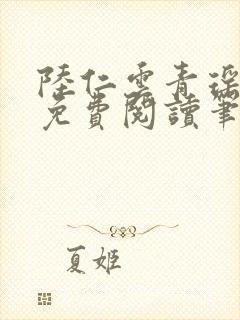 陸仁雲青瑤
免費閱讀筆
夏姬